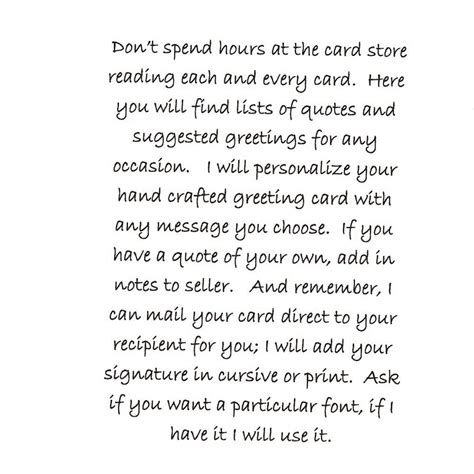 Don't spend hours at the card store
reading each and every card.  Here
you will find lists of quotes and
suggested greetings for any
occasion.   I will personalize your
hand crafted greeting card with
any message you choose.  If you
have a quote of your own, add in
notes to seller.   And remember, I
can mail your card direct to your
recipient for you; I will add your
signature in cursive or print.  Ask
if you want a particular font, if I
have it I will use it.